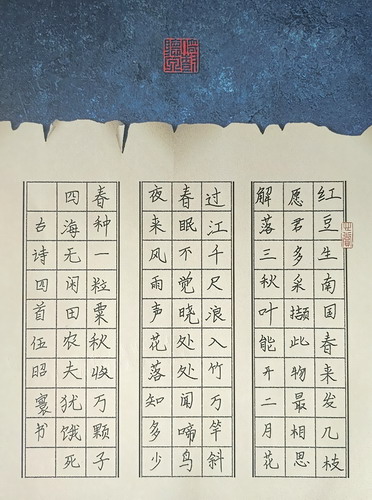 红豆生南国春来发几枝
愿君多采撷此物最相思
解落三秋叶能开二月花
过江千尺浪入竹万竿斜
春眠不觉晓处处闻啼鸟
夜来风雨声花落知多少
春种一粒粟秋收万颗子
四海无闲田农夫犹饿死
古诗四首伍昭襄书